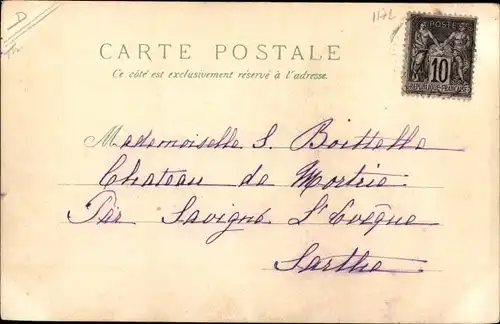 D
1172
POSTES
10
REPUBLIQUE FRANCAISE
CARTE POSTALE
Ce côté est exclusivement réservé à l'adresse.
Mademoiselle S. Boittelle
Château de Mortrie
Par Savigné L'Evêque
Sarthe